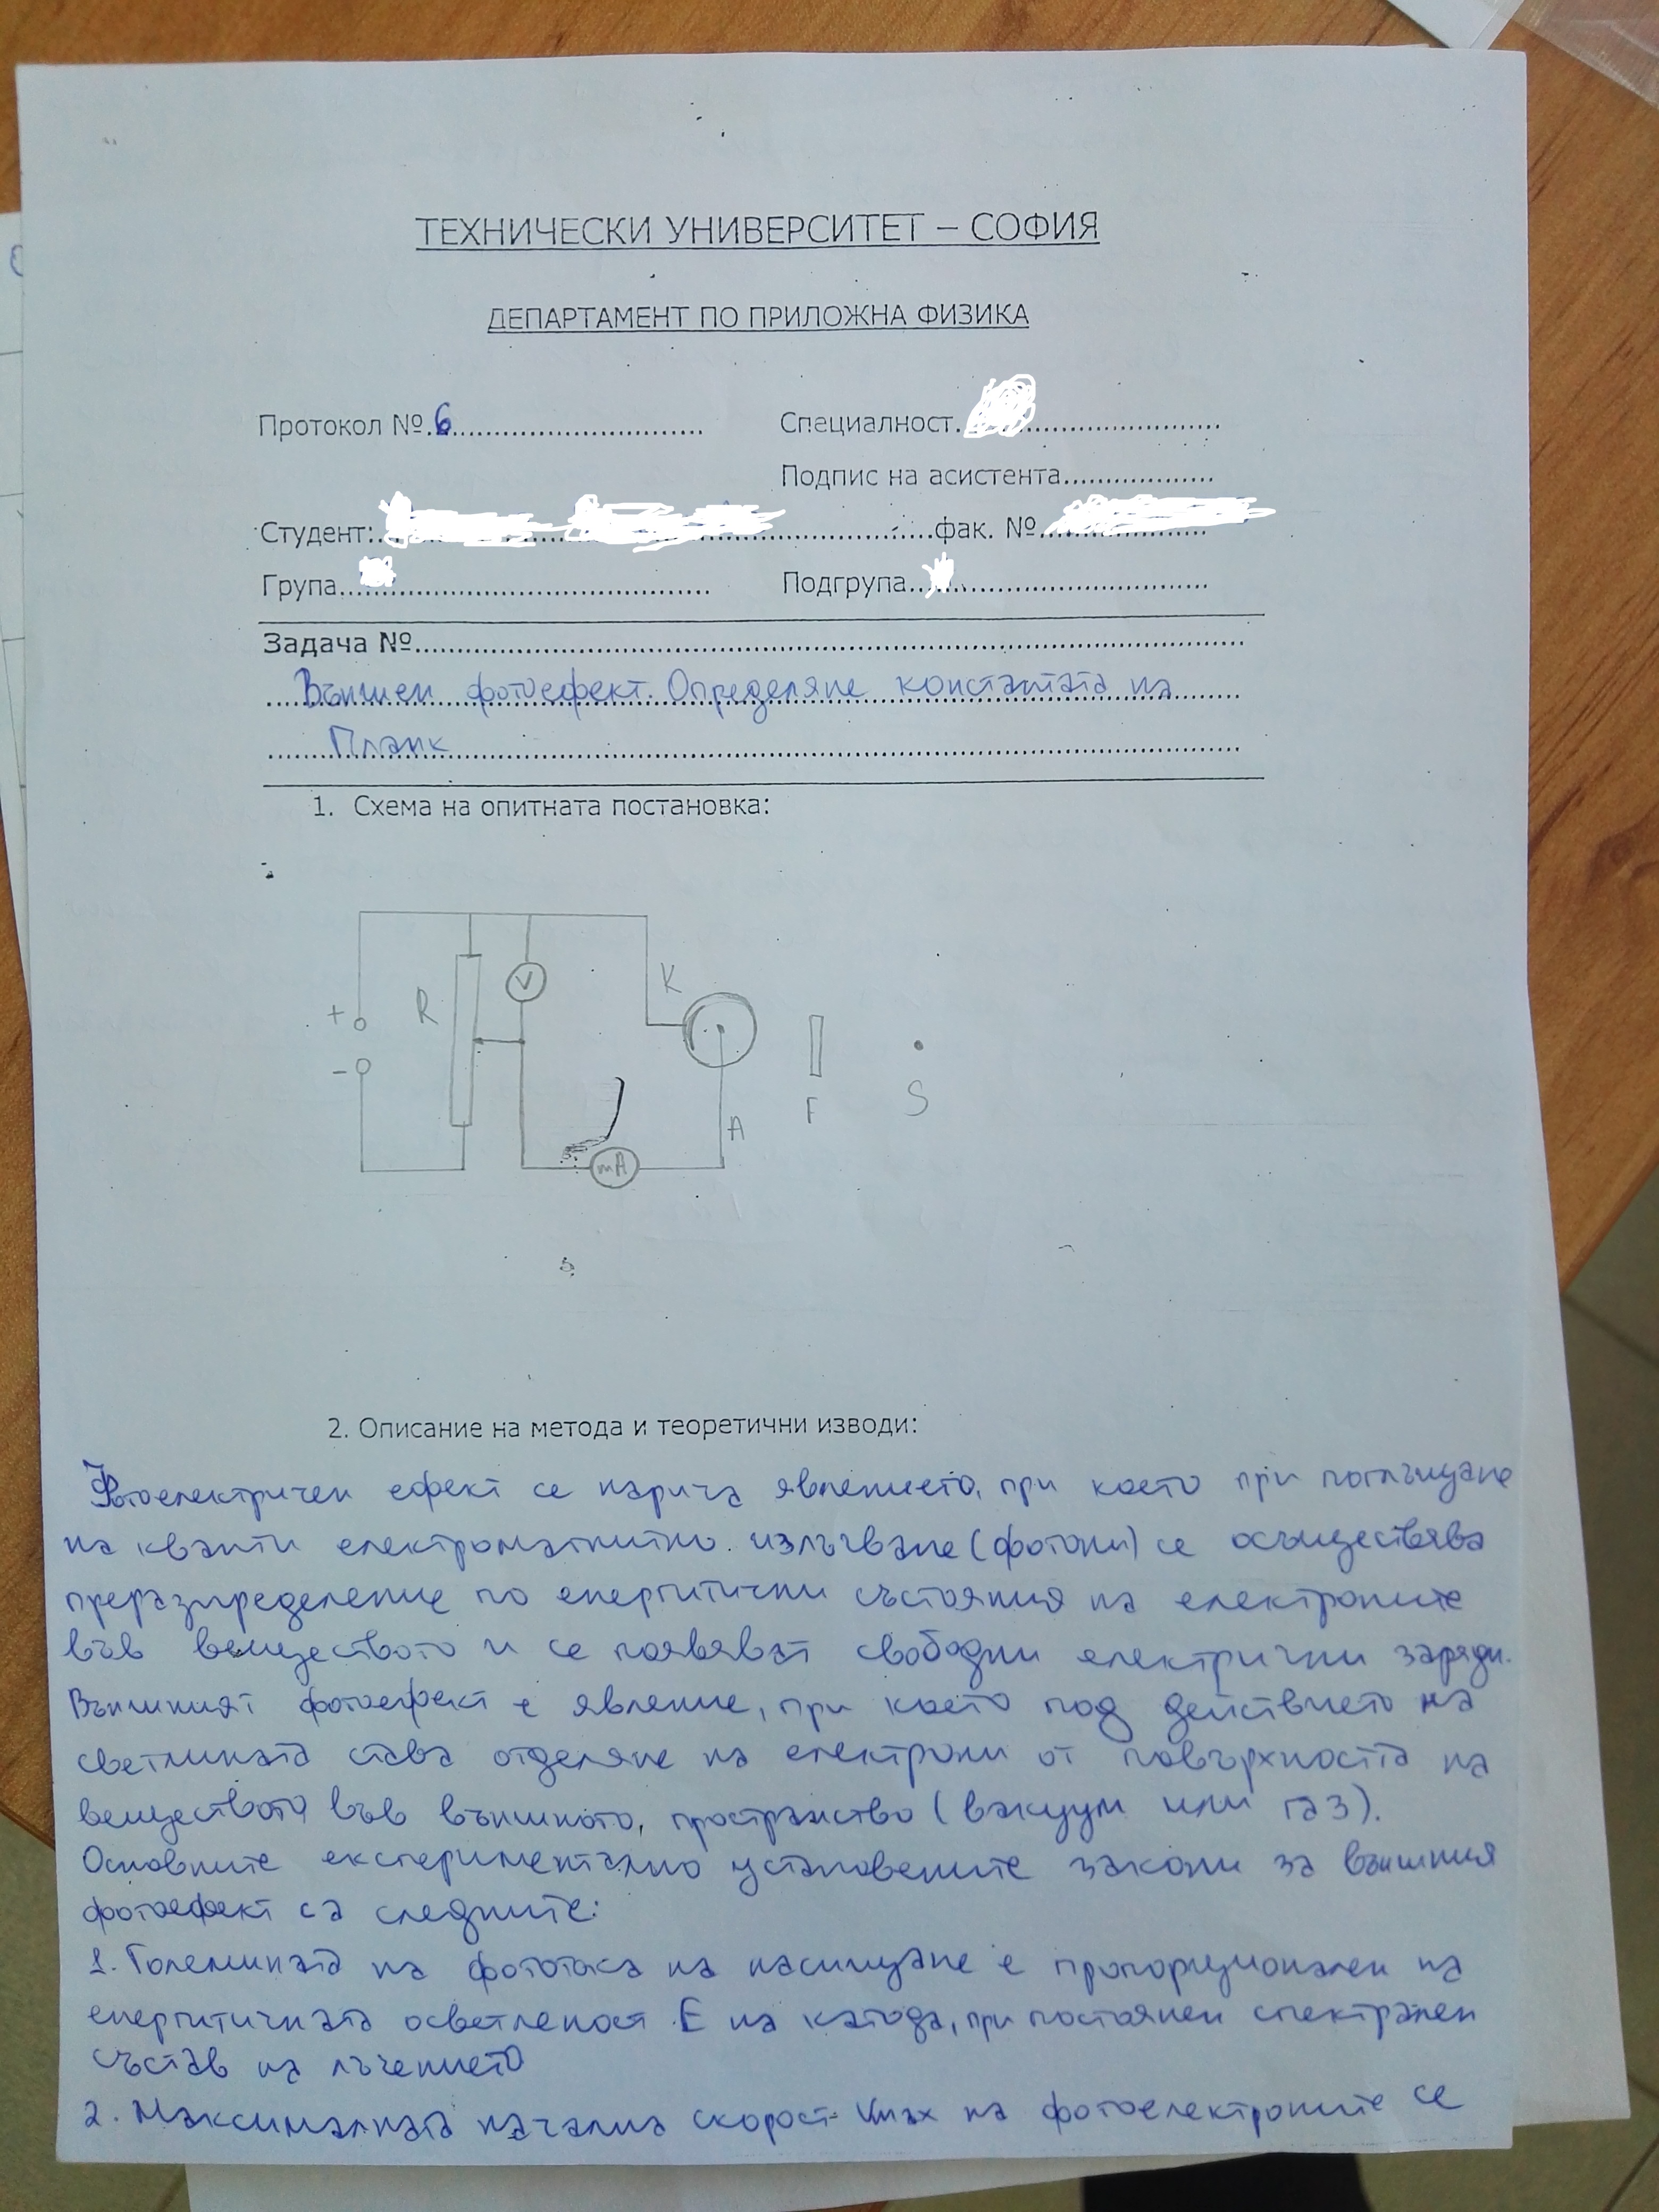 ТЕХНИЧЕСКИ УНИВЕРСИТЕТ – СОФИЯ
ДЕПАРТАМЕНТ ПО ПРИЛОЖНА ФИЗИКА
Протокол № 6 Специалност
Подпис на асистента
Студент: фак. №
Група Подгрупа
Задача №
Външен фотоефект. Определяне константата на
Планк
1. Схема на опитната постановка:
+
-
R
V
K
A
mA
F
S
2. Описание на метода и теоретични изводи:
Фотоелектричен ефект се нарича явлението, при което при поглъщане
на кванти електромагнитно излъчване (фотони) се осъществява
преразпределение по енергитични състояния на електроните
във веществото и се появяват свободни електрични заряди.
Външният фотоефект е явление, при което под действието на
светлината става отделяне на електрони от повърхността на
веществото във външното, пространство (вакуум или газ).
Основните експериментално установените закони за външния
фотоефект са следните:
1. Големината на фототока на насищане е пропорционален на
енергитичната осветленост E на катода, при постоянен спектрален
състав на лъчението
2. Максималната начална скорост Vmax на фотоелектроните се